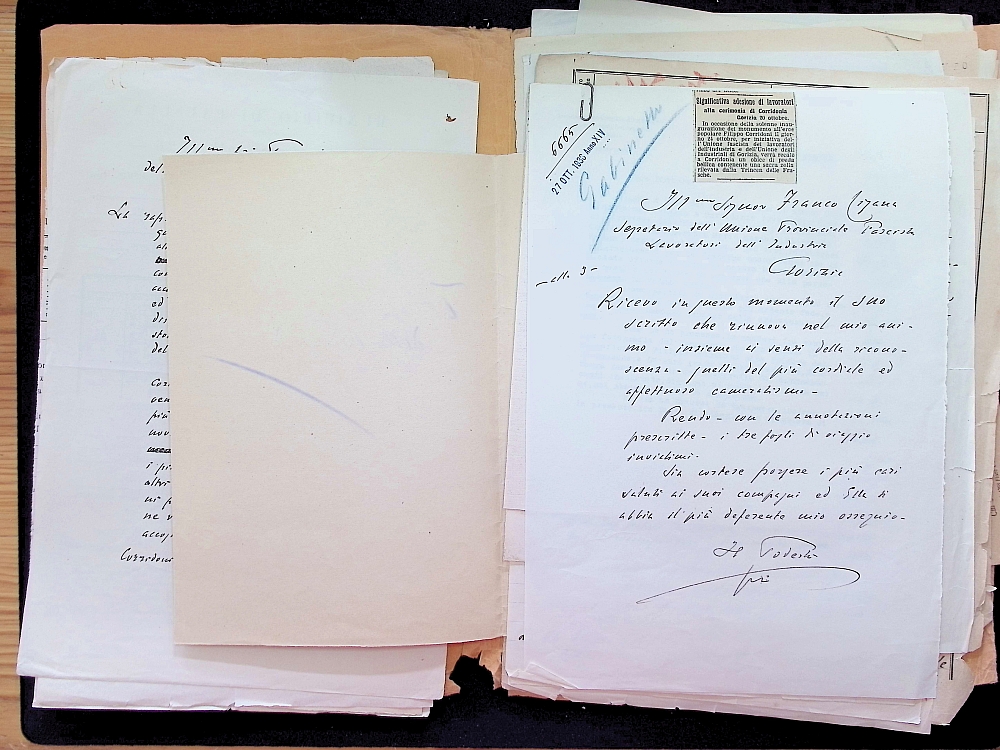 Ill mo
del
La rap
ed
dis
sto
del
ven
più
nuo
i pi
altri
ne v
accog
Corridoni
6665
27 OTT. 1936 Anno XIV
Gabinetto
Significativa adesione di lavoratori
alla cerimonia di Corridonia
Gorizia 20 ottobre.
In occasione della solenne inau-
gurazione del monumento all'eroe
popolare Filippo Corridoni il gior-
no 24 ottobre, per iniziativa del-
l'Unione fascista dei lavoratori
dell'industria e dell'Unione degli
Industriali di Gorizia, verrà recato
a Corridonia un obice di preda
bellica contenente una sacra zolla
rilevata dalla Trincea delle Fra-
sche.
Ill mo Signor Franco
Segretario dell'Unione Provinciale Fascista
Lavoratori dell'Industria
Gorizia
- alle 3 -
Ricevo in questo momento il suo
scritto che rinnova nel mio ani-
mo - insieme ai sensi della ricono-
scenza - quelli del più cordiale ed
affettuoso cameratismo -
Rendo - con le annotazioni
prescritte - i tre fogli di viaggio
inviatimi.
Sia cortese porgere i più cari
saluti ai suoi compagni ed Ella si
abbia il più deferente mio ossequio -
Il Podestà